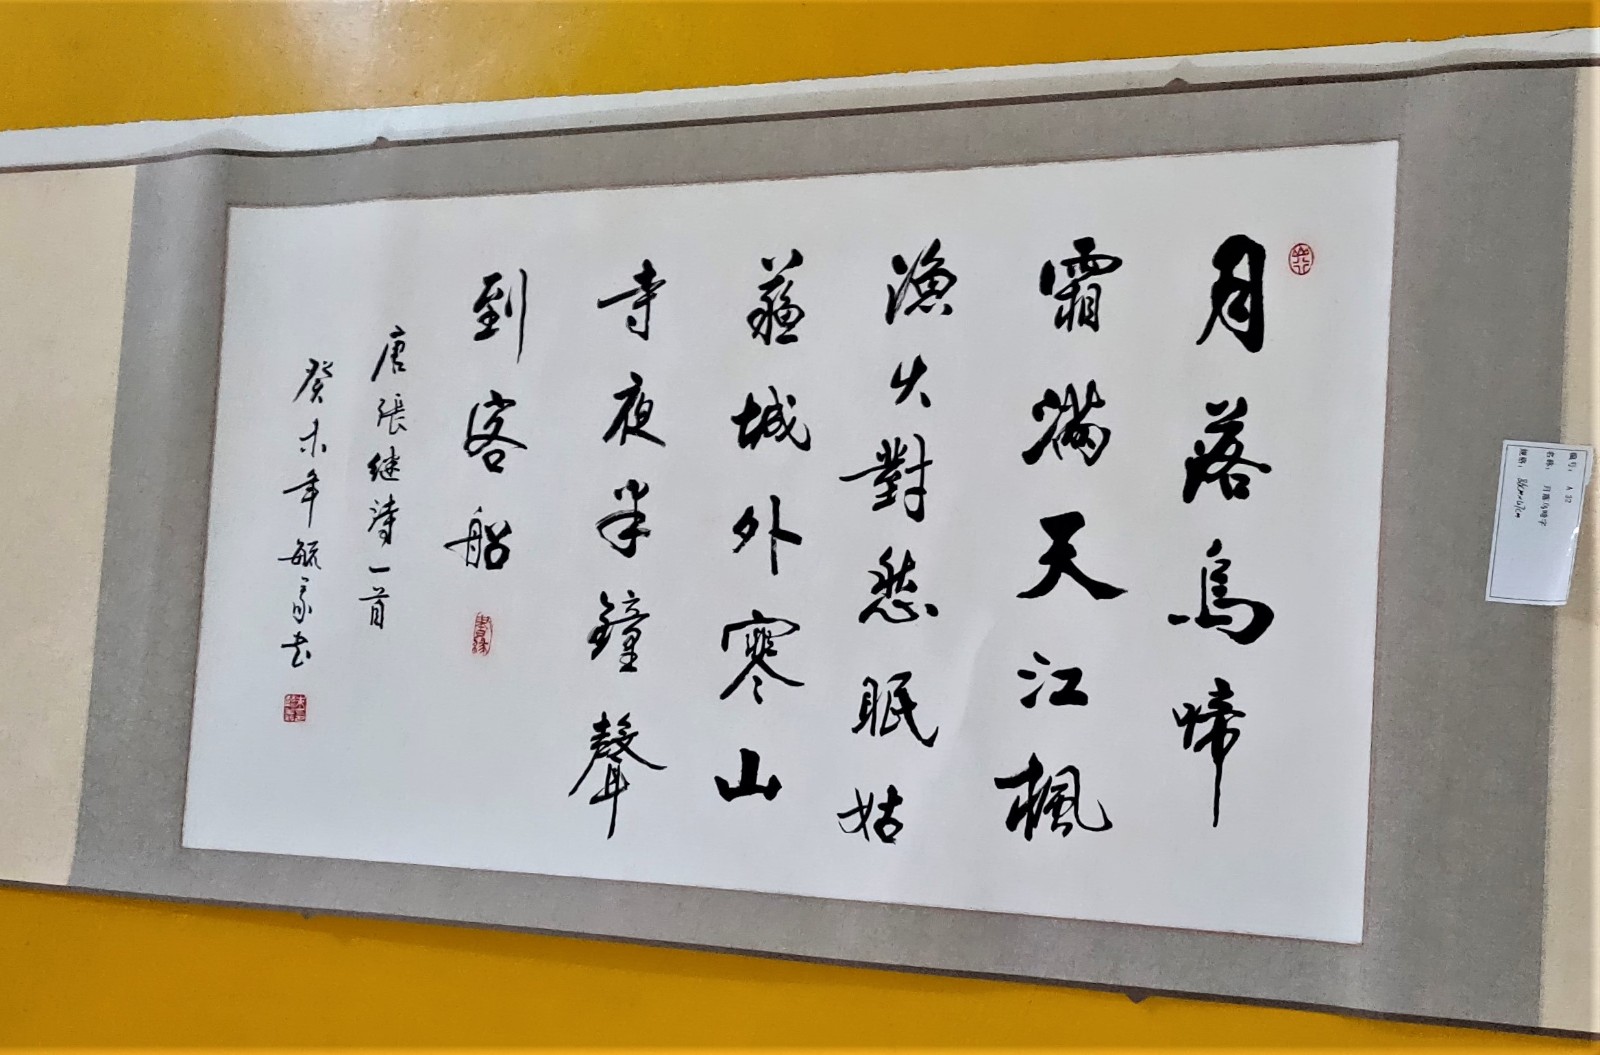 月落烏啼
霜滿天江楓
漁火對愁眠姑
蘇城外寒山
寺夜半鐘聲
到客船
唐張继詩一首
癸未年毓豪书
编号: A 22
名称: 月落乌啼字
规格: